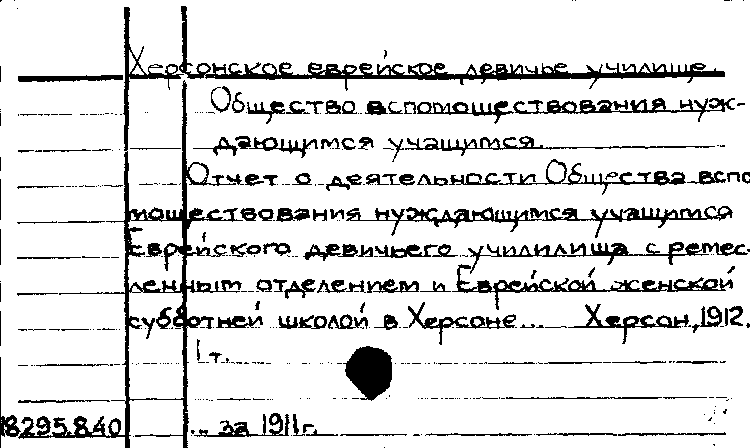 Херсонское еврейское девичье училище.
Общество вспомоществования нуж-
дающимся учащимся.
Отчет о деятельности Общества вспо
мощесствования нуждающимся учащимся
Еврейского девичьего училилища с ремес-
ленным отделением и Еврейской женской
субботней школой в Херсоне... Херсон, 1912.
1 т.
18295.8.40 ... за 1911 г.